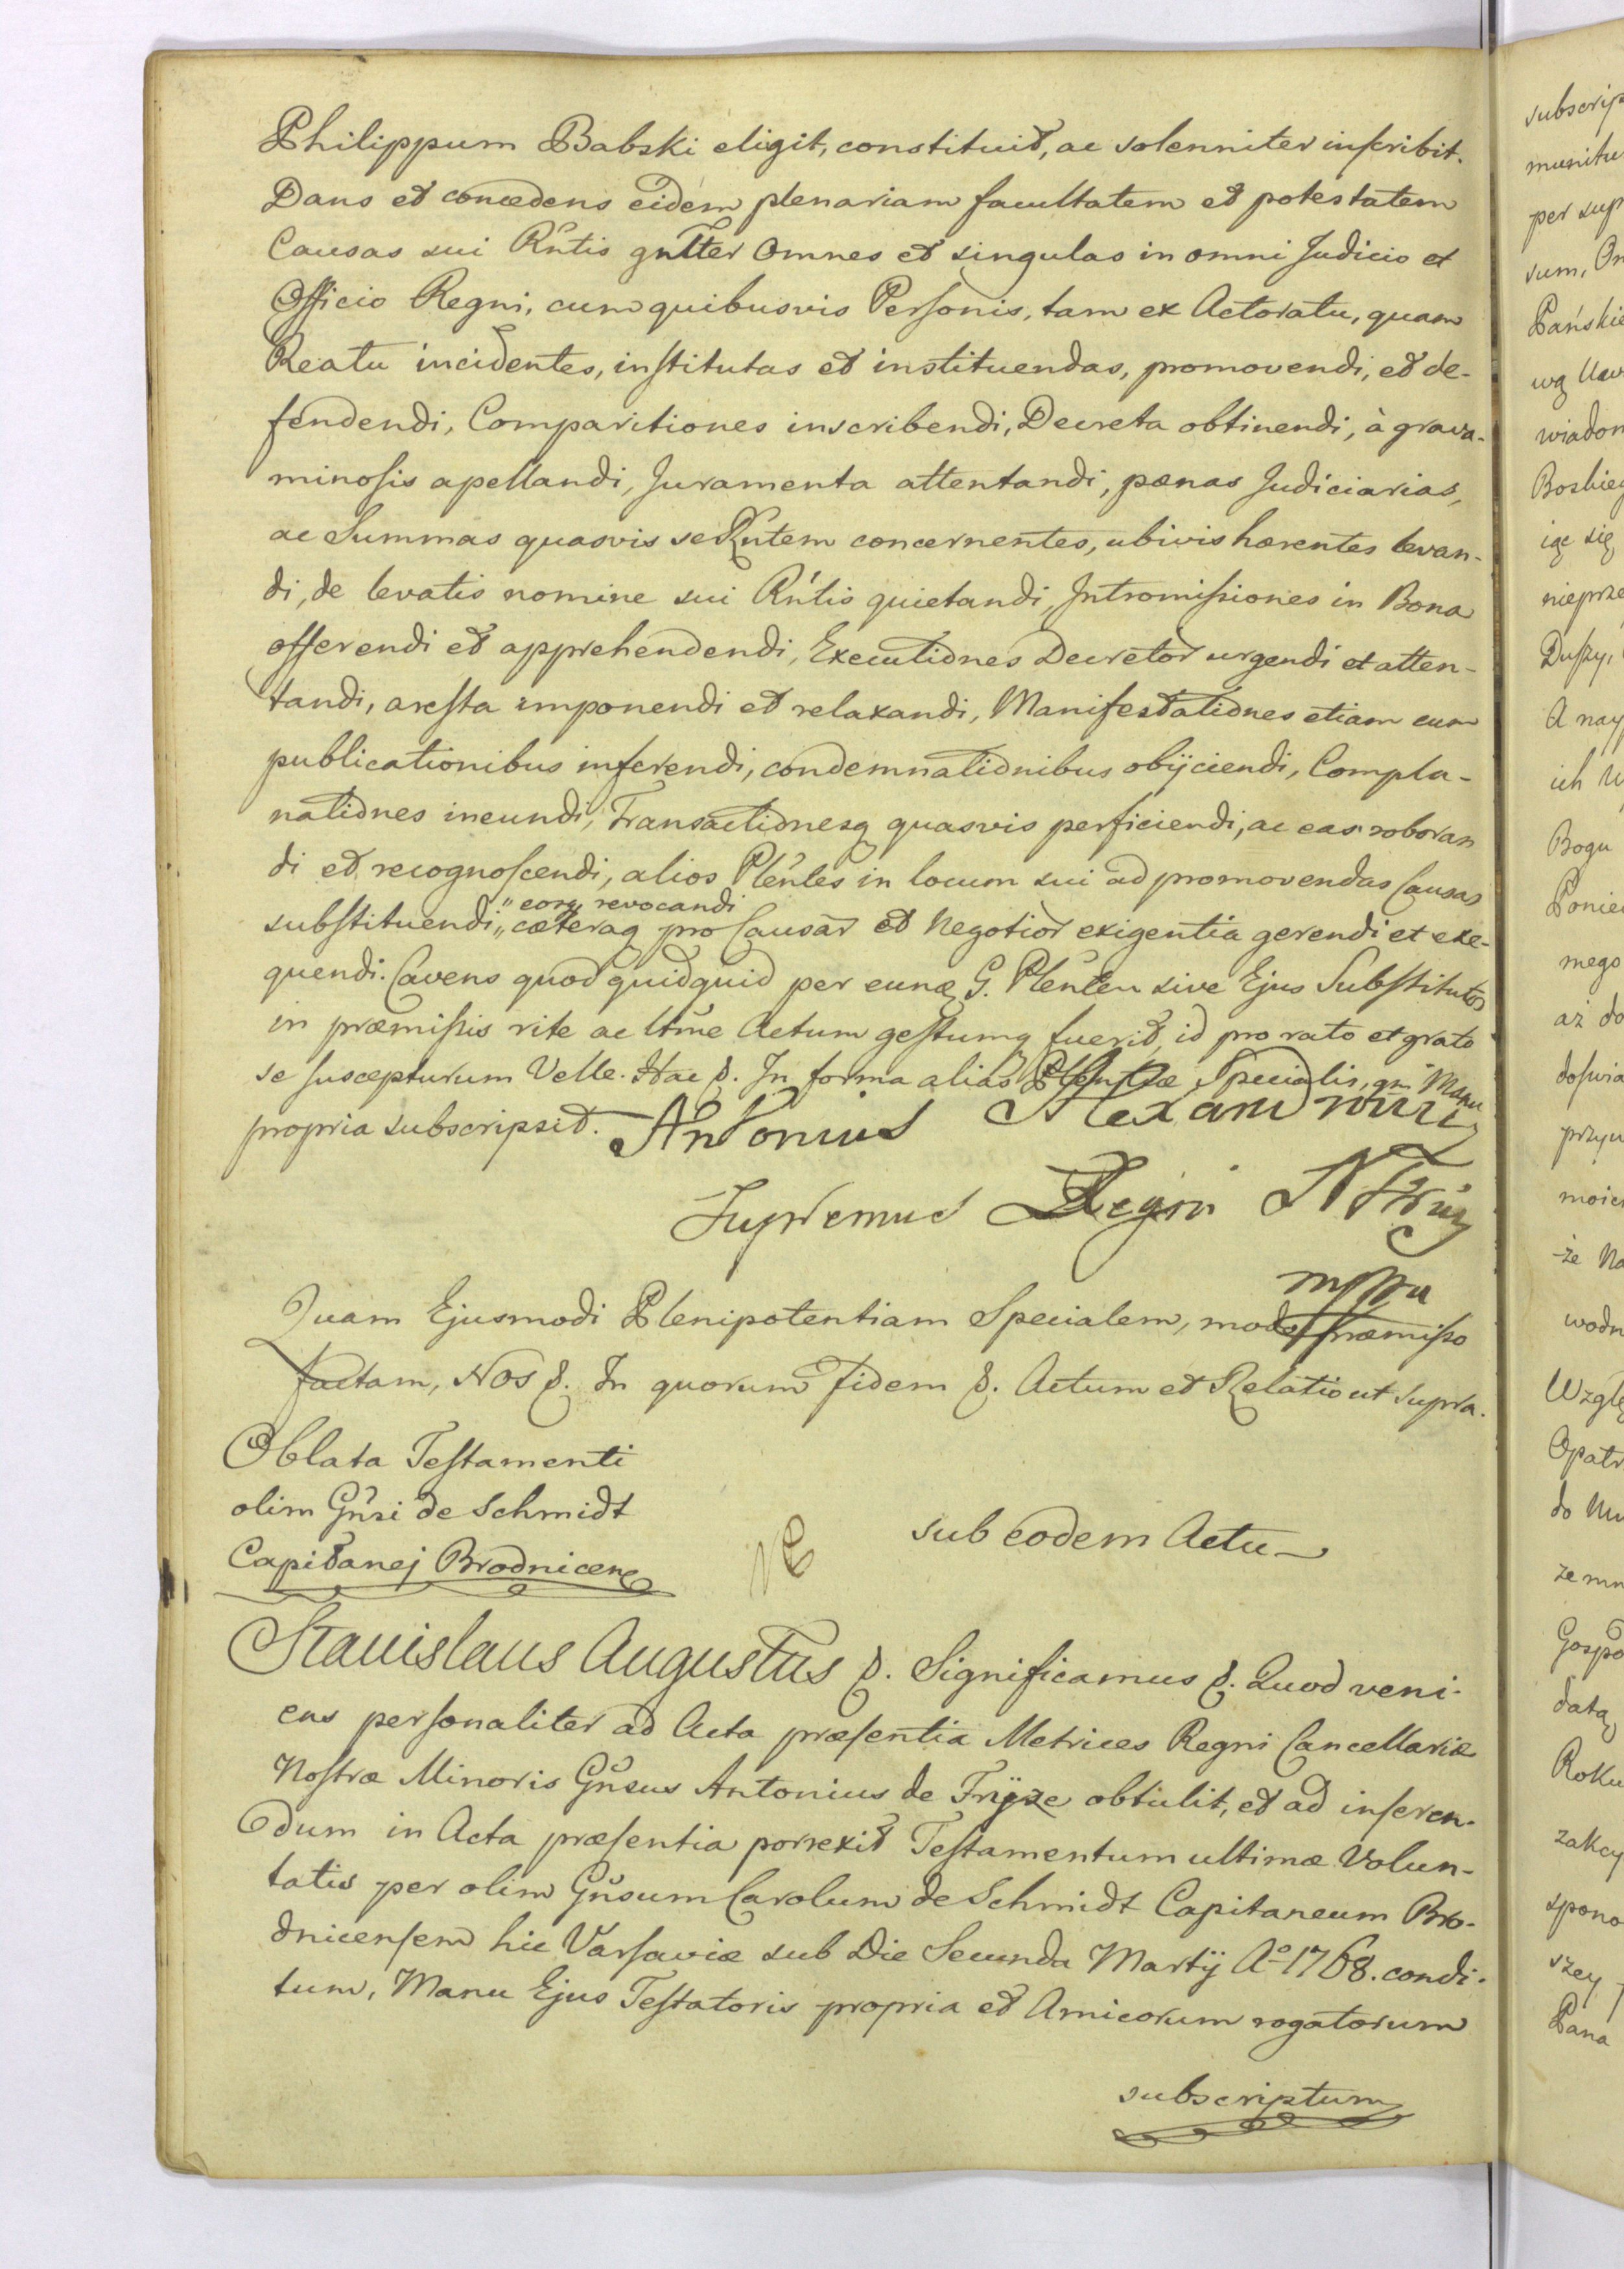 Philippum Babski eligit, constituit, ac solenniter inscribit.
Dans et concedens eidem plenariam facultatem et potestatem
Causas sui Rntis gnlter Omnes et singulas in omni Judicio et
Officio Regni, cum quibusvis Personis, tam ex Actoratu, quam
Reatu incidentes, institutas et instituendas, promovendi, et de-
fendendi, Comparitiones inscribendi, Decreta obtinendi, à grava-
minosis apellandi, Juramenta attentandi, pænas Judiciarias,
ac Summas quasvis se Rntem concernentes, ubivis hærentes levan-
di, de levatis nomine sui Rntis quietandi, Intromissiones in Bona
offerendi et apprehendendi, Executiones Decretor urgendi et atten-
tandi, aresta imponendi et relaxandi, Manifestationes etiam cum
publicationibus inferendi, condemnationibus obijciendi, Compla-
nationes ineundi, Transactionesq quasvis perficiendi, ac eas roboran
di et recognoscendi, alios Plentes in locum sui ad promovendas Causas
substituendi „ eosq revocandi „ cæteraq pro Causar et Negotior exigentia gerendi et exe-
quendi. Cavens quod quidquid per eunq G. Plenten sive Ejus Substitutos
in præmissis rite ac ltme Actum gestumq fuerit, id pro rato et grato
se suscepturum Velle. Hac &. In forma alias Plentiæ Specialis, qm Manu
propria subscripsit. Antonius
Supremus Regni
mppa
Quam Ejusmodi Plenipotentiam Specialem, modo præmisso
factam, Nos &. In quorum fidem &. Actum et Relatio ut supra.
Oblata Testamenti
olim Gnsi de Schmidt
Capitanej Brodnicen
sub eodem Actu
Stanislaus Augustus &. Significamus &. Quod veni-
ens personaliter ad Acta præsentia Metrices Regni Cancellariæ
Nostræ Minoris Gnsus Antonius de Fryze obtulit, et ad inseren-
dum in Acta præsentia porrexit Testamentum ultimæ Volun-
tatis per olim Gnsum Carolum de Schmidt Capitaneum Bro-
dnicensem hic Varsaviæ sub Die Secunda Martij Aº 1768. condi-
tum, Manu Ejus Testatoris propria et Amicorum rogatorum
subscriptum